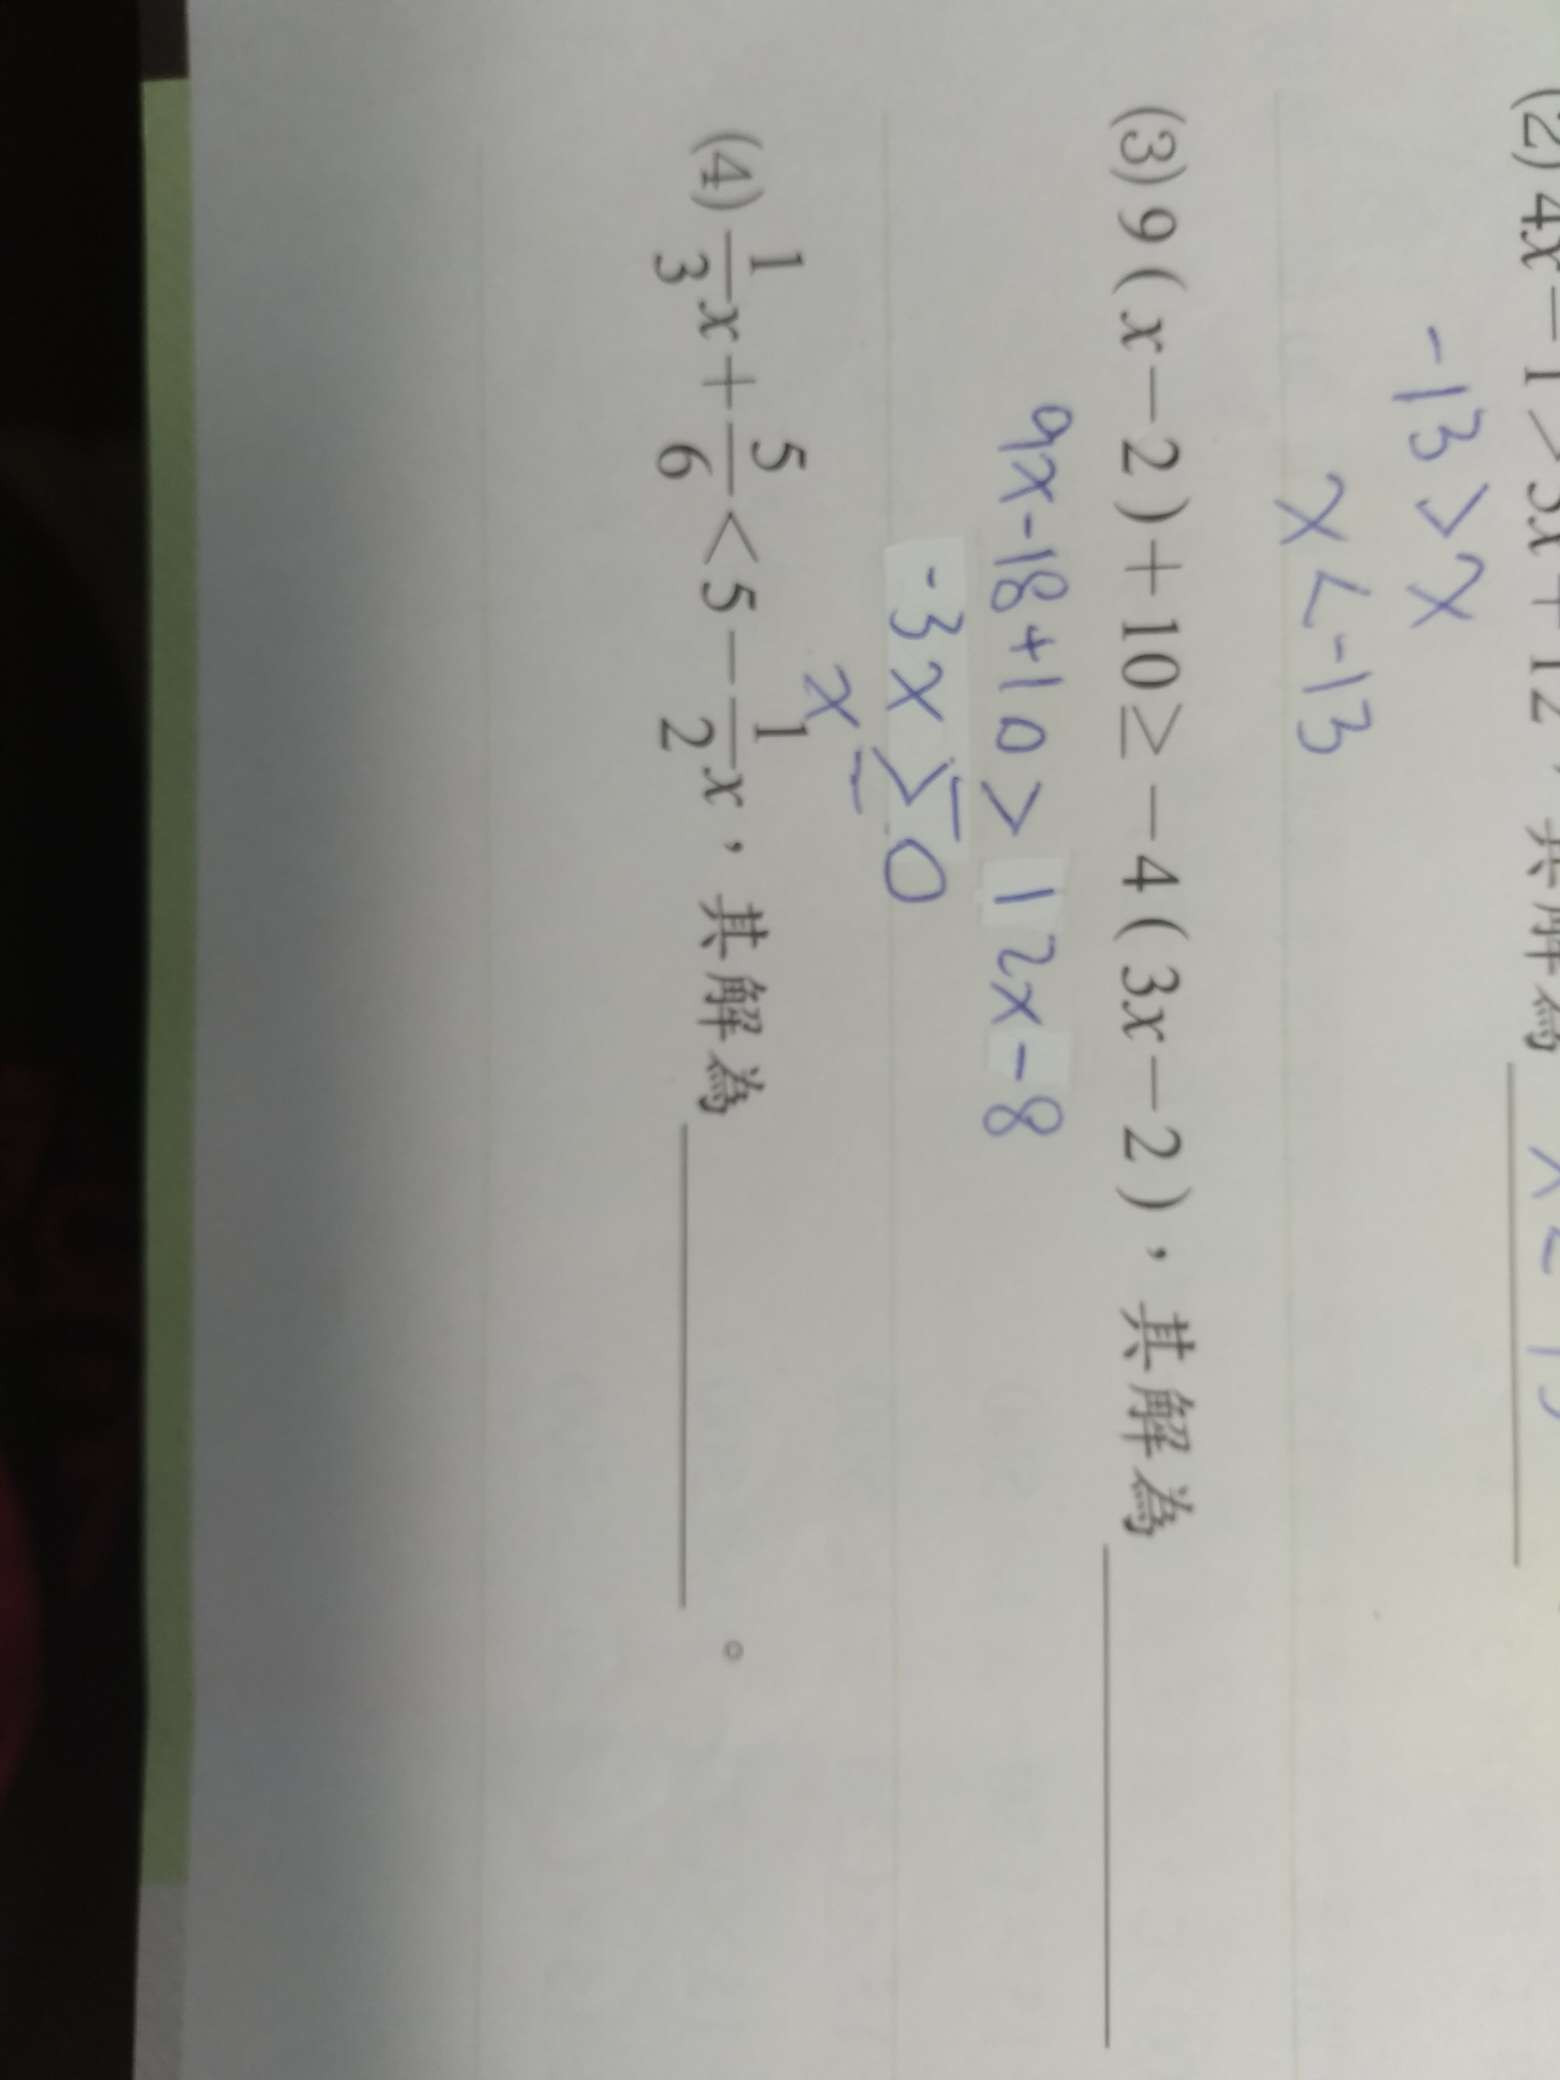 (2) 4x－1＞5x＋12，其解為 x<-13
-13>x
x<-13
(3) 9(x－2)＋10≥－4(3x－2)，其解為
9x-18+10>12x-8
-3x≥0
x-
(4) \frac{1}{3}x＋\frac{5}{6}＜5－\frac{1}{2}x，其解為＿＿＿＿。